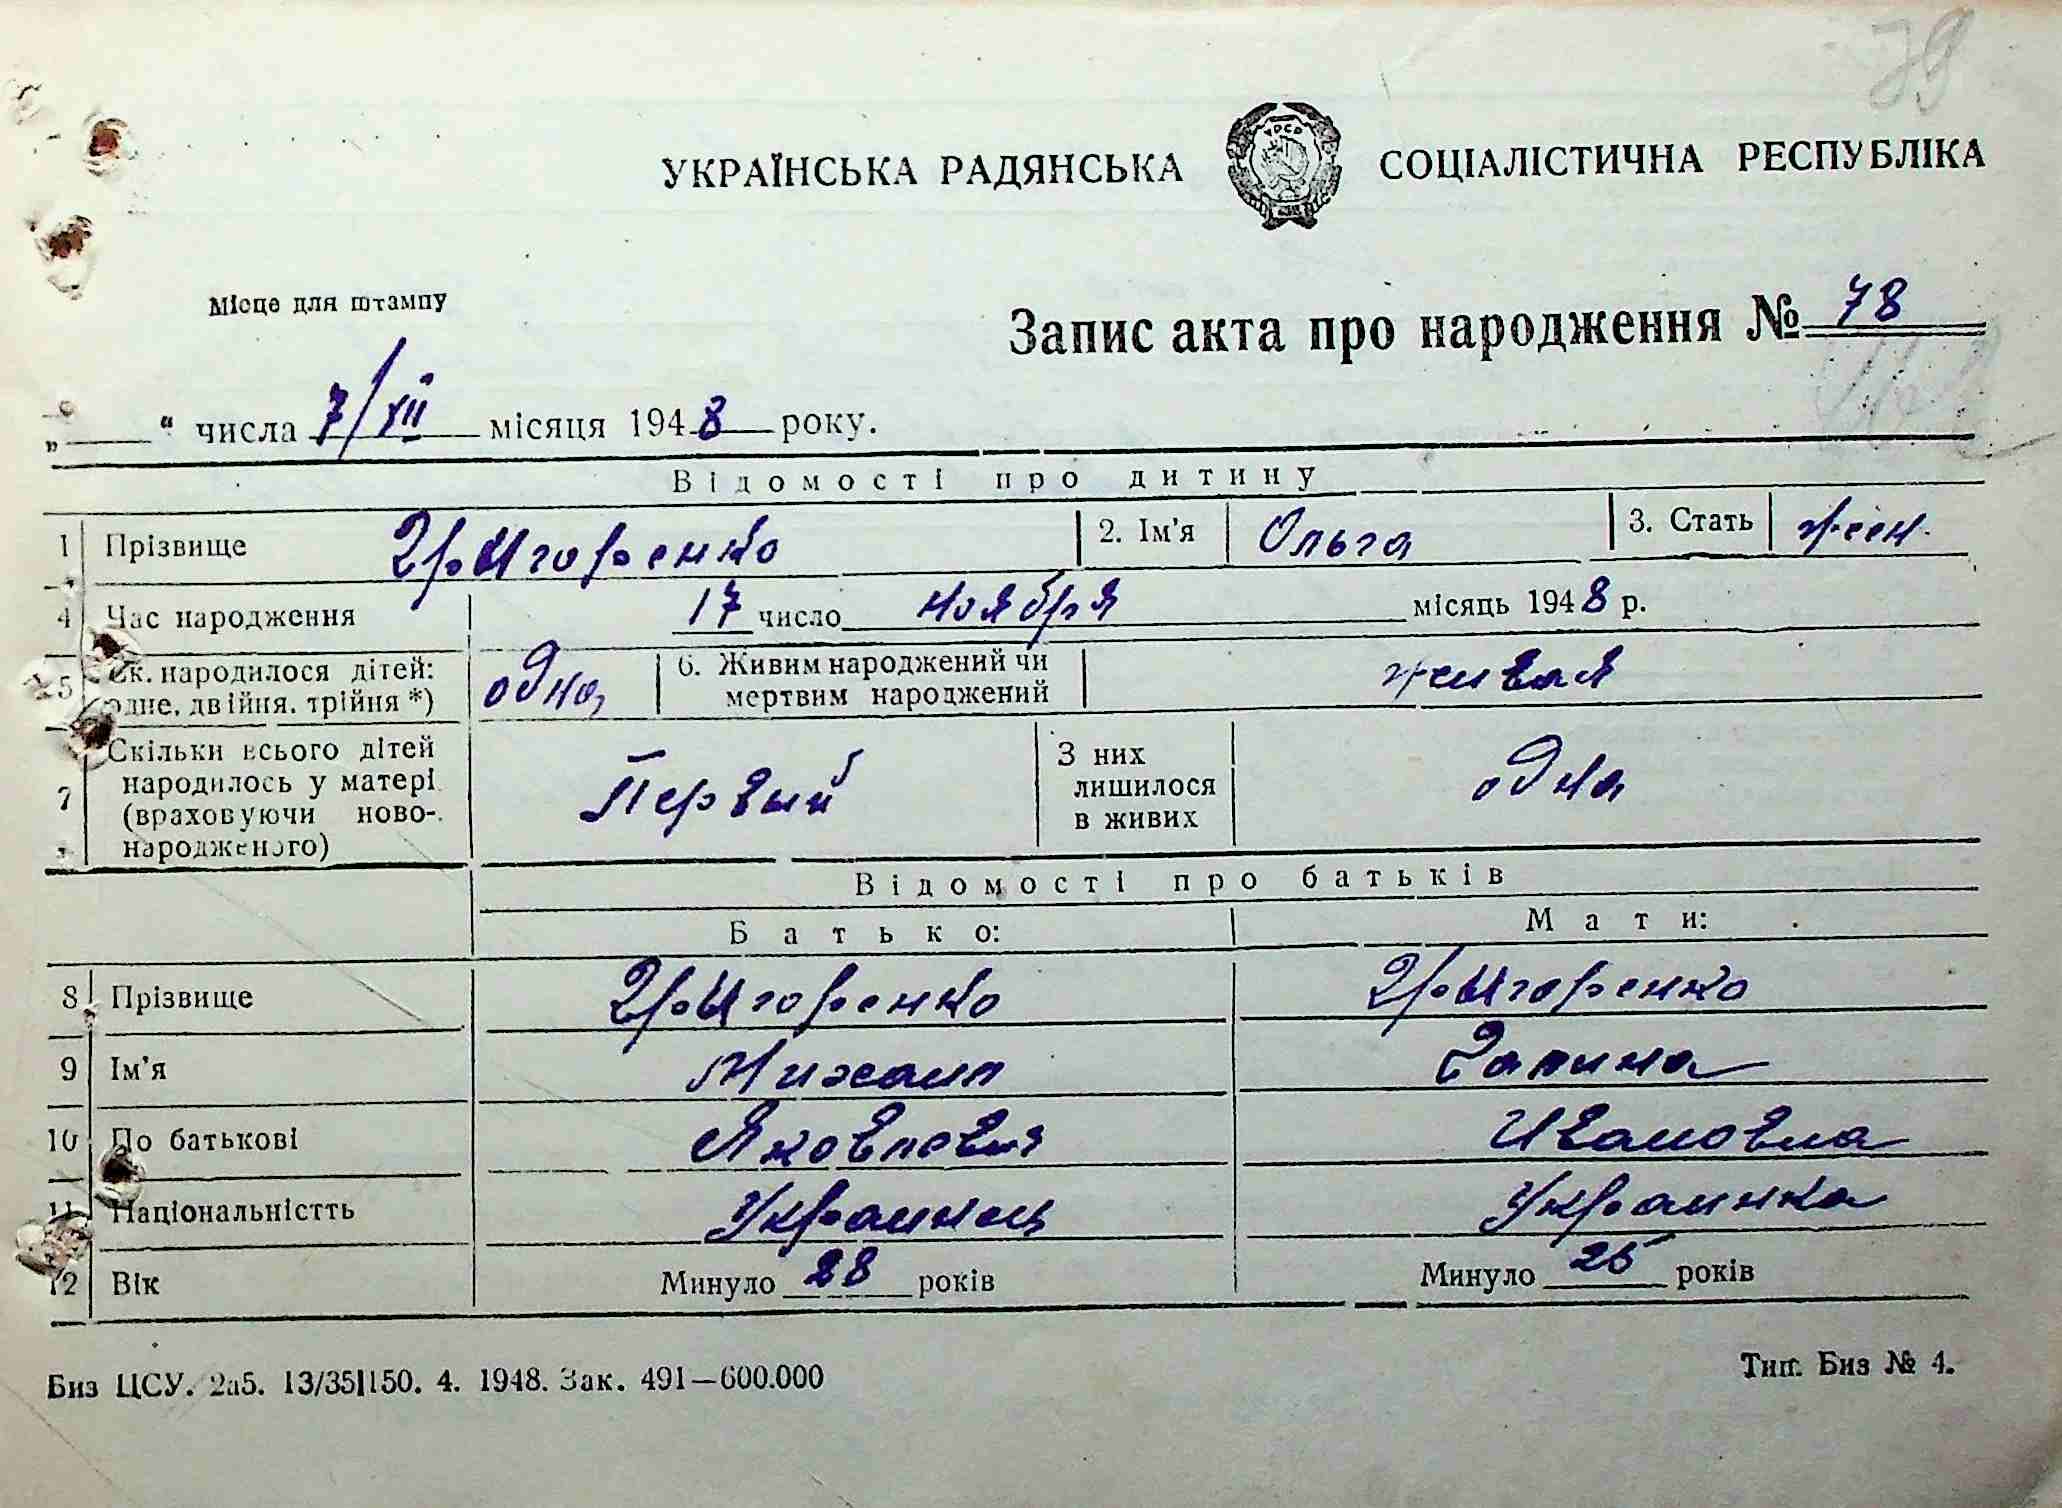 79
УКРАЇНСЬКА РАДЯНСЬКА СОЦІАЛІСТИЧНА РЕСПУБЛІКА
УРСР
Місце для штампу
Запис акта про народження № 78
„ “ числа 7/XII місяця 1948 року.
Відомості про дитину
1 Прізвище Григоренко 2. Ім'я Ольга 3. Стать жен.
4 Час народження 17 число ноября місяць 1948 р.
5 Ск. народилося дітей: одне, двійня, трійня *) одна 6. Живим народжений чи мертвим народжений живая
7 Скільки всього дітей народилось у матері (враховуючи ново-народженого) Первый З них лишилося в живих одна
Відомості про батьків
Батько: Мати:
8 Прізвище Григоренко Григоренко
9 Ім'я Михаил Галина
10 По батькові Яковлевич Ивановна
11 Національністть Украинец Украинка
12 Вік Минуло 28 років Минуло 25 років
Биз ЦСУ. 2а5. 13/35|150. 4. 1948. Зак. 491—600.000 Тип. Биз № 4.